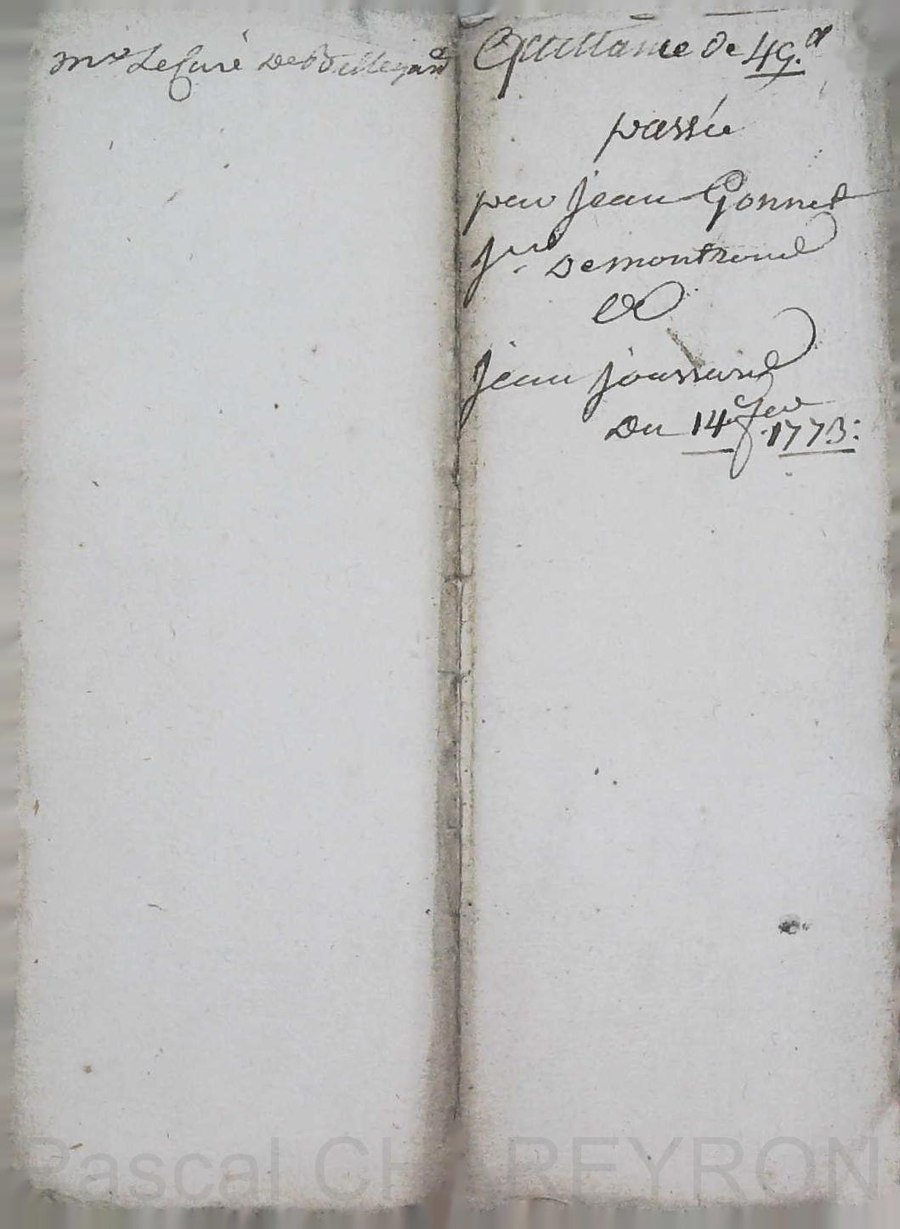 mr Le Curé De
Quittance de 49.#
passée
par Jean Gonnet
Demontrond
Jean Joussand
Du 14e fer 1773:
Pascal CHAREYRON